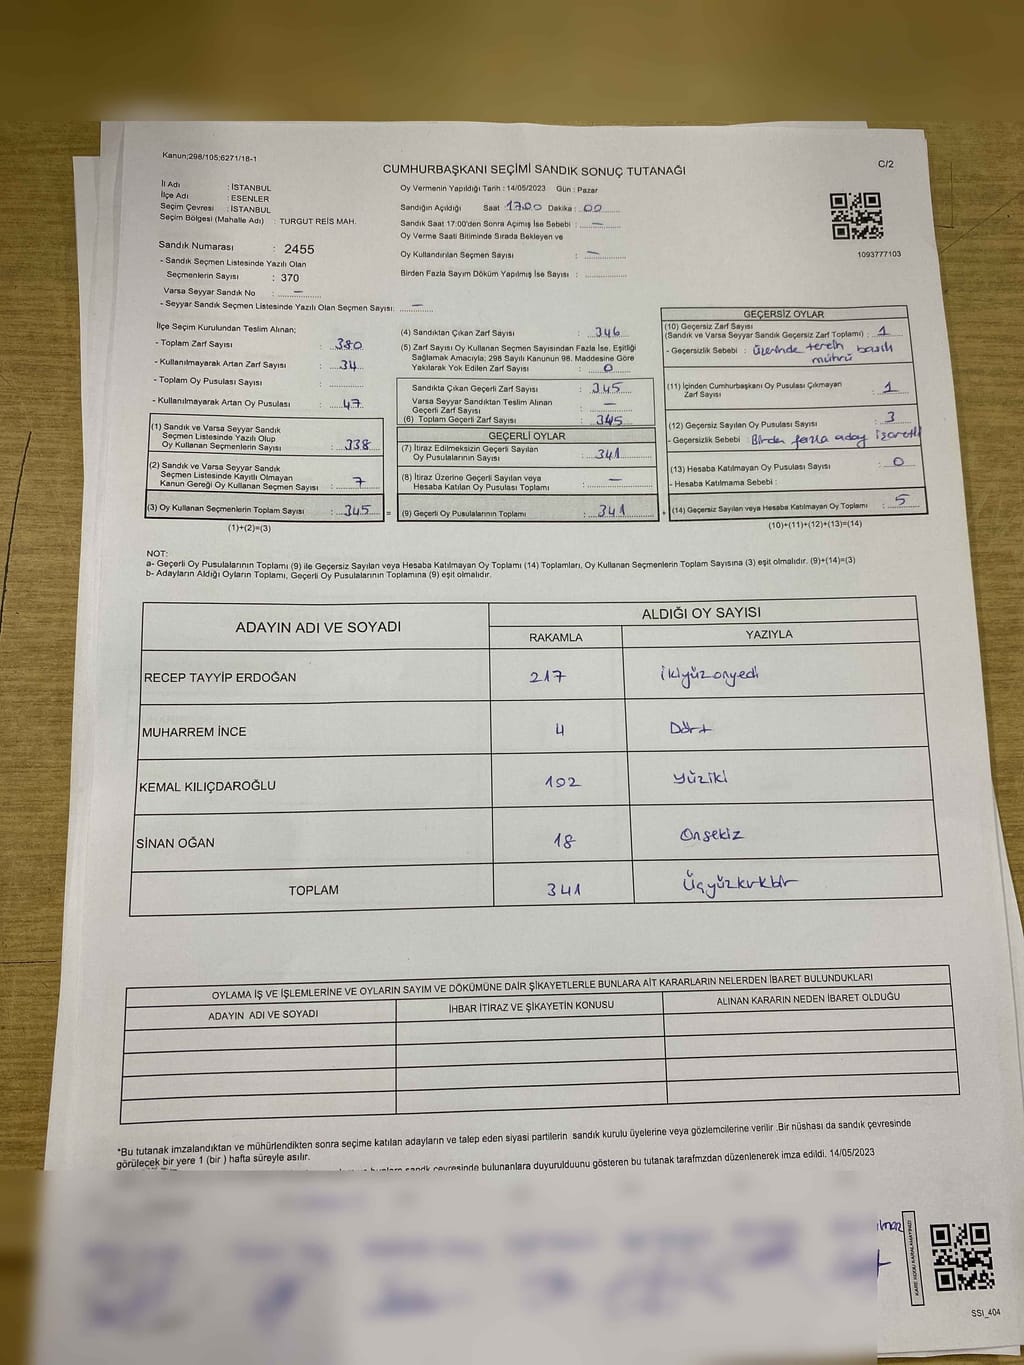 Kanun;298/105;6271/18-1
C/2
CUMHURBAŞKANI SEÇİMİ SANDIK SONUÇ TUTANAĞI
İl Adı : İSTANBUL
İlçe Adı : ESENLER
Seçim Çevresi : İSTANBUL
Seçim Bölgesi (Mahalle Adı) : TURGUT REİS MAH.
Sandık Numarası : 2455
- Sandık Seçmen Listesinde Yazılı Olan
Seçmenlerin Sayısı : 370
Varsa Seyyar Sandık No : —
- Seyyar Sandık Seçmen Listesinde Yazılı Olan Seçmen Sayısı: —
Oy Vermenin Yapıldığı Tarih : 14/05/2023 Gün : Pazar
Sandığın Açıldığı Saat 17.00 Dakika : 00
Sandık Saat 17:00'den Sonra Açımış İse Sebebi : —
Oy Verme Saati Bitiminde Sırada Bekleyen ve
Oy Kullandırılan Seçmen Sayısı : —
Birden Fazla Sayım Döküm Yapılmış İse Sayısı :
1093777103
İlçe Seçim Kurulundan Teslim Alınan;
- Toplam Zarf Sayısı : 380
- Kullanılmayarak Artan Zarf Sayısı : 34
- Toplam Oy Pusulası Sayısı :
- Kullanılmayarak Artan Oy Pusulası : 47
(1) Sandık ve Varsa Seyyar Sandık
Seçmen Listesinde Yazılı Olup
Oy Kullanan Seçmenlerin Sayısı : 338
(2) Sandık ve Varsa Seyyar Sandık
Seçmen Listesinde Kayıtlı Olmayan
Kanun Gereği Oy Kullanan Seçmen Sayısı : 7
(3) Oy Kullanan Seçmenlerin Toplam Sayısı : 345 =
(1)+(2)=(3)
(4) Sandıktan Çıkan Zarf Sayısı : 346
(5) Zarf Sayısı Oy Kullanan Seçmen Sayısından Fazla İse, Eşitliği
Sağlamak Amacıyla; 298 Sayılı Kanunun 98. Maddesine Göre
Yakılarak Yok Edilen Zarf Sayısı : 0
Sandıkta Çıkan Geçerli Zarf Sayısı : 345
Varsa Seyyar Sandıktan Teslim Alınan
Geçerli Zarf Sayısı : —
(6) Toplam Geçerli Zarf Sayısı : 345
GEÇERLİ OYLAR
(7) İtiraz Edilmeksizin Geçerli Sayılan
Oy Pusulalarının Sayısı : 341
(8) İtiraz Üzerine Geçerli Sayılan veya
Hesaba Katılan Oy Pusulası Toplamı : —
(9) Geçerli Oy Pusulalarının Toplamı : 341 +
GEÇERSİZ OYLAR
(10) Geçersiz Zarf Sayısı
(Sandık ve Varsa Seyyar Sandık Geçersiz Zarf Toplamı) : 1
- Geçersizlik Sebebi : üzerinde tercih basılı
mührü
(11) İçinden Cumhurbaşkanı Oy Pusulası Çıkmayan
Zarf Sayısı : 1
(12) Geçersiz Sayılan Oy Pusulası Sayısı : 3
- Geçersizlik Sebebi : Birden fazla aday işaretli
(13) Hesaba Katılmayan Oy Pusulası Sayısı : 0
- Hesaba Katılmama Sebebi :
(14) Geçersiz Sayılan veya Hesaba Katılmayan Oy Toplamı : 5
(10)+(11)+(12)+(13)=(14)
NOT:
a- Geçerli Oy Pusulalarının Toplamı (9) ile Geçersiz Sayılan veya Hesaba Katılmayan Oy Toplamı (14) Toplamları, Oy Kullanan Seçmenlerin Toplam Sayısına (3) eşit olmalıdır. (9)+(14)=(3)
b- Adayların Aldığı Oyların Toplamı, Geçerli Oy Pusulalarının Toplamına (9) eşit olmalıdır.
ADAYIN ADI VE SOYADI
ALDIĞI OY SAYISI
RAKAMLA YAZIYLA
RECEP TAYYİP ERDOĞAN 217 ikiyüzonyedi
MUHARREM İNCE 4 Dört
KEMAL KILIÇDAROĞLU 102 yüziki
SİNAN OĞAN 18 Onsekiz
TOPLAM 341 Üçyüzkırkbir
OYLAMA İŞ VE İŞLEMLERİNE VE OYLARIN SAYIM VE DÖKÜMÜNE DAİR ŞİKAYETLERLE BUNLARA AİT KARARLARIN NELERDEN İBARET BULUNDUKLARI
ADAYIN ADI VE SOYADI İHBAR İTİRAZ VE ŞİKAYETİN KONUSU ALINAN KARARIN NEDEN İBARET OLDUĞU
*Bu tutanak imzalandıktan ve mühürlendikten sonra seçime katılan adayların ve talep eden siyasi partilerin sandık kurulu üyelerine veya gözlemcilerine verilir .Bir nüshası da sandık çevresinde
görülecek bir yere 1 (bir ) hafta süreyle asılır.
sandık çevresinde bulunanlara duyurulduunu gösteren bu tutanak tarafmzdan düzenlenerek imza edildi. 14/05/2023
KARE KODU KARALAMAYINIZ!
SSİ_404